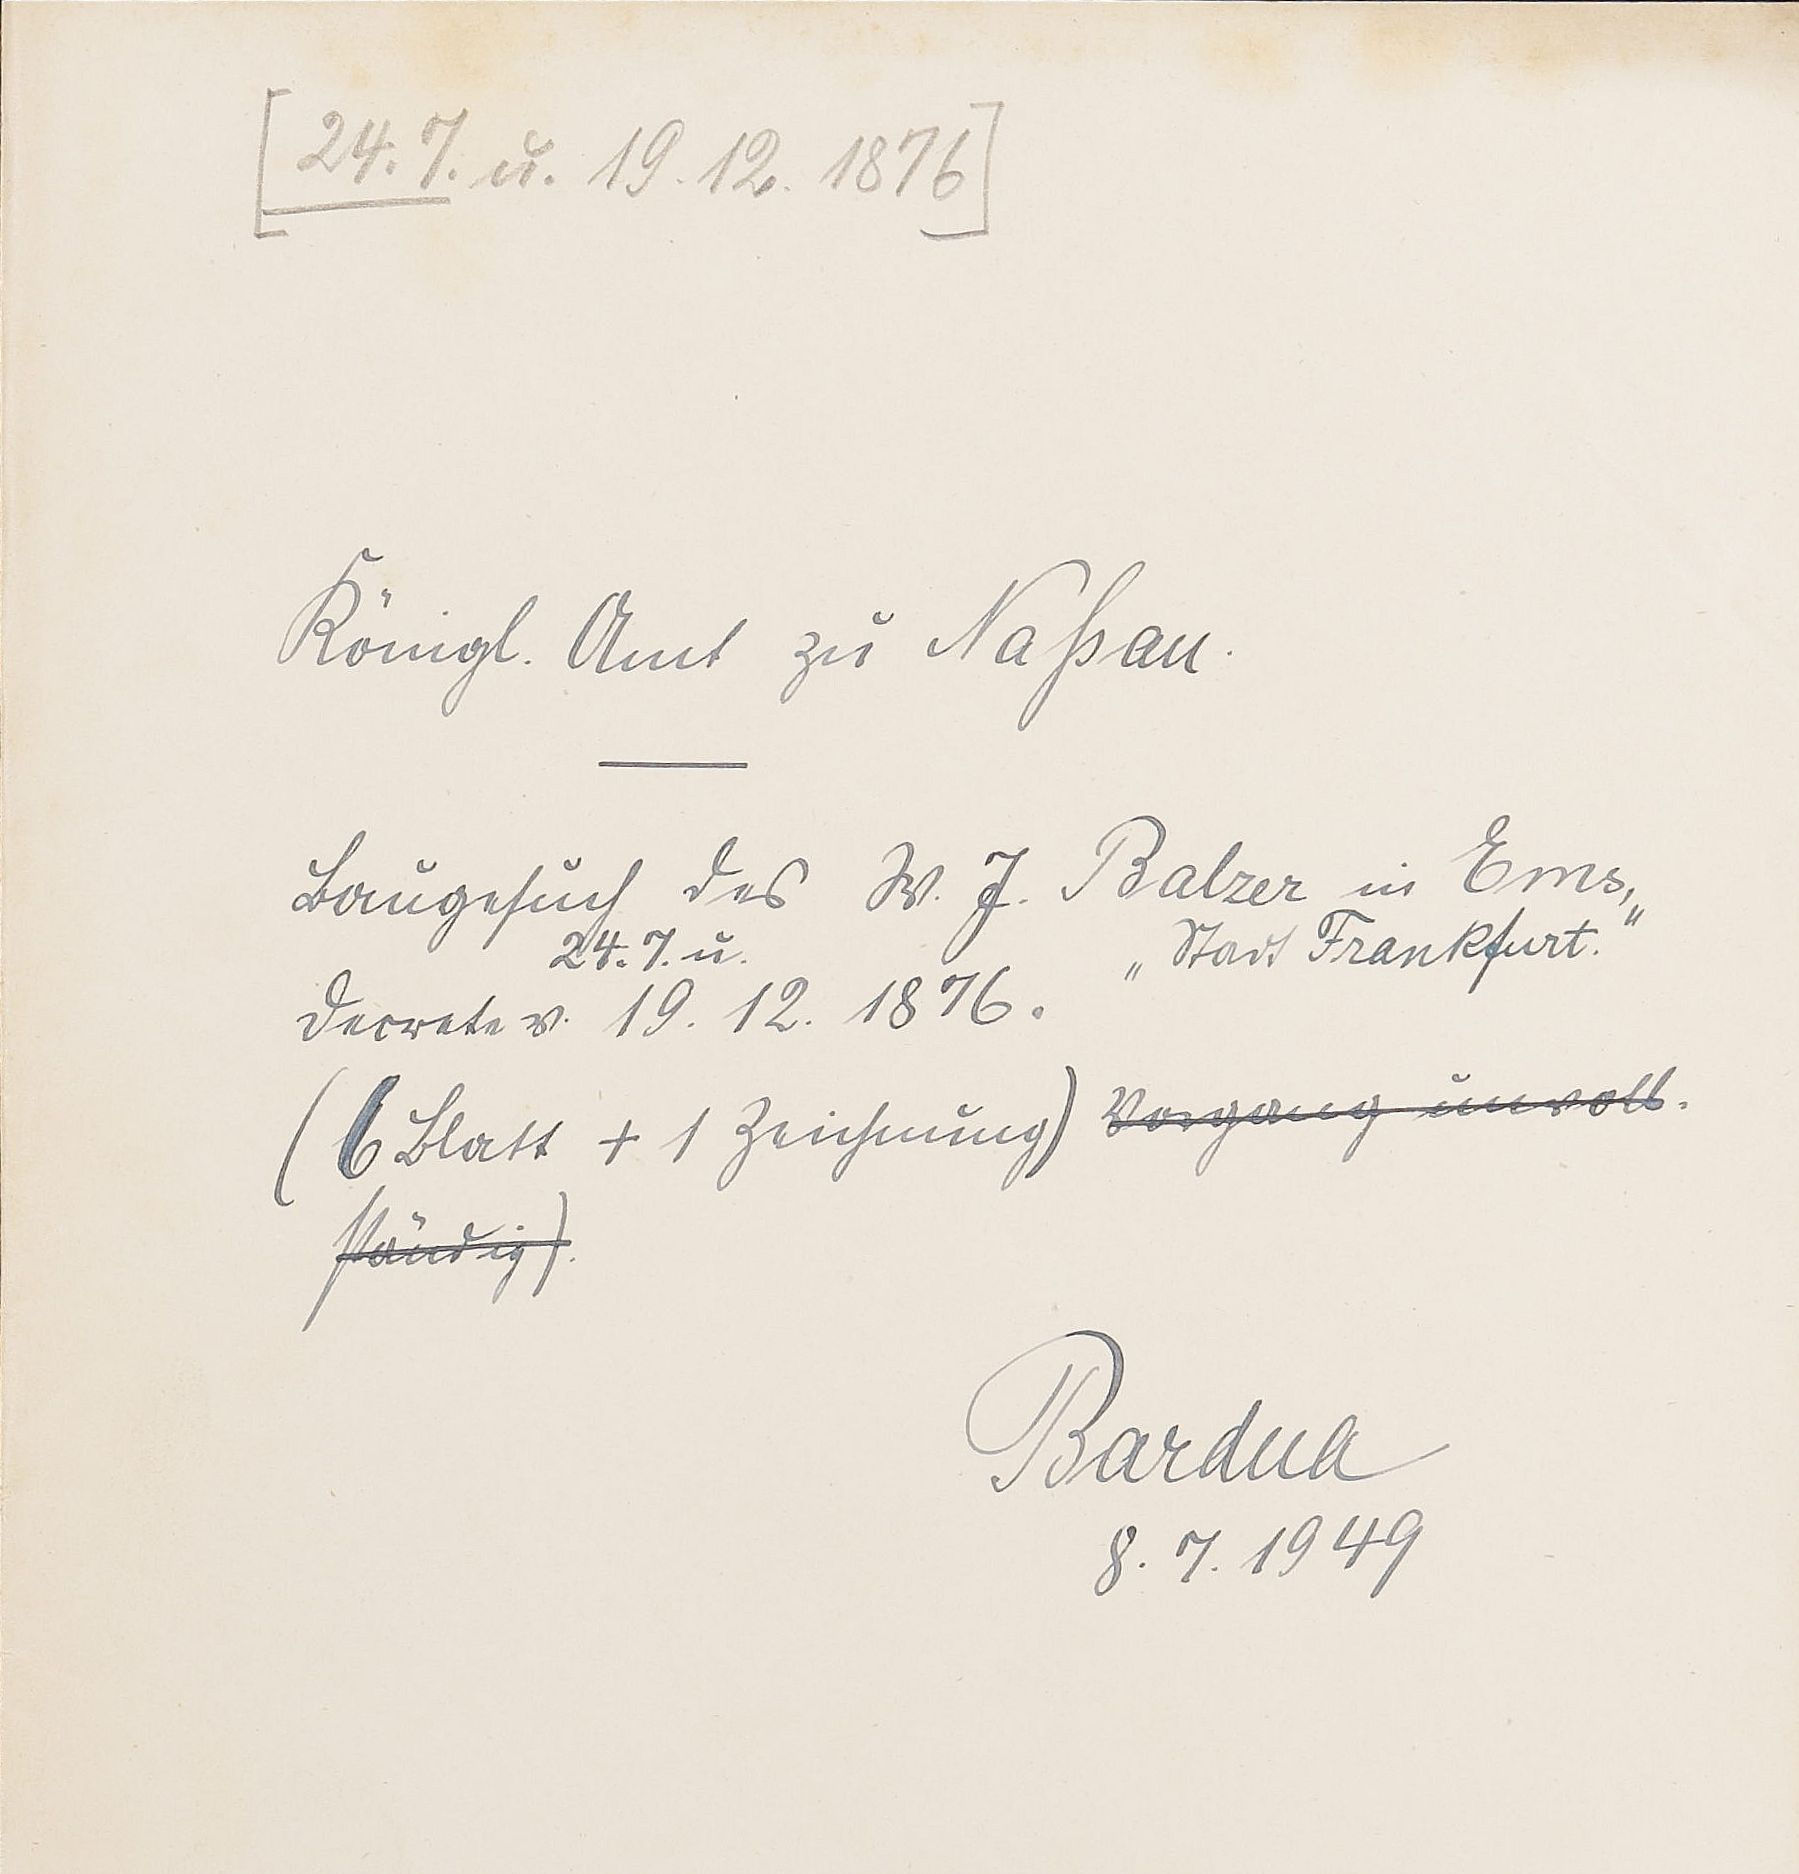 [24. 7. u. 19. 12. 1876]
Königl. Amt zu Naßau.
Baugesuch des W. J. Balzer in Ems,
„Stadt Frankfurt."
24. 7. u.
Decrete v. 19. 12. 1876.
(6 Blatt + 1 Zeichnung) Vorgang unvoll-
ständig).
Bardua
8. 7. 1949